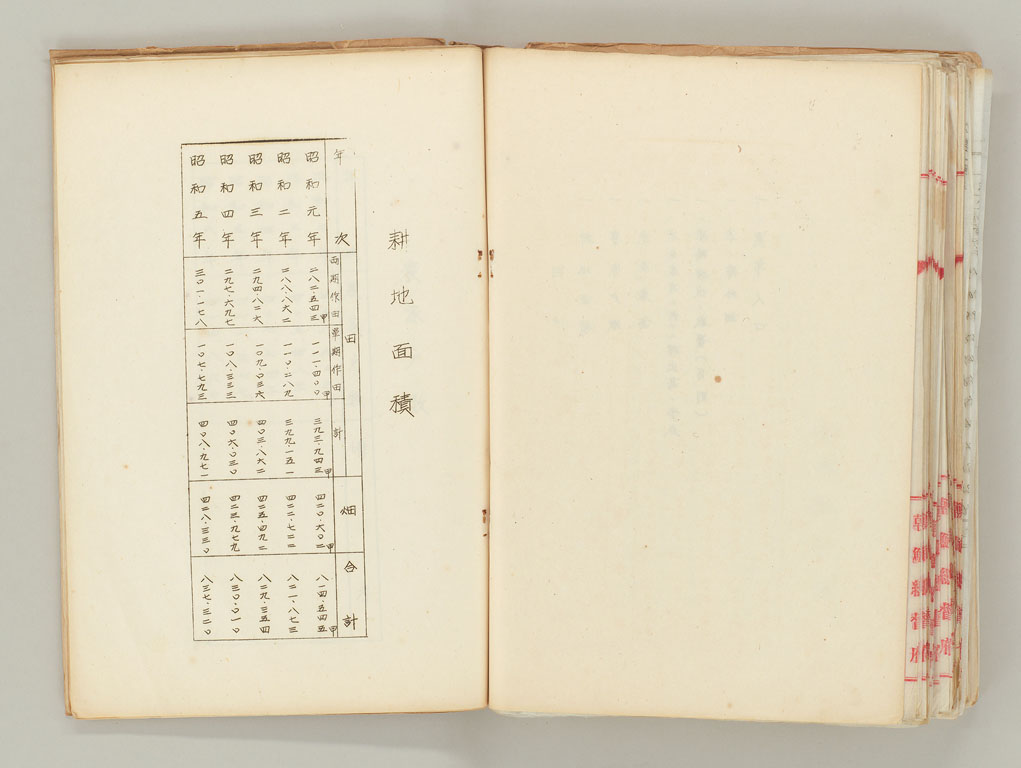 耕地面積
年次 田 畑 合計
両期作田 單期作田 計
昭和元年 二八二・五四三甲 一一一・四〇〇甲 三九三・九四三甲 四二〇・六〇二甲 八一四・五四五甲
昭和二年 二八八・八六二 一一〇・二八九 三九九・一五一 四二二・七二二 八二一・八七三
昭和三年 二九四・八二六 一〇九・〇三六 四〇三・八六二 四二五・四九二 八二九・三五四
昭和四年 二九七・六九七 一〇八・三三三 四〇六・〇三〇 四二三・九七九 八三〇・〇一〇
昭和五年 三〇一・一七八 一〇七・七九三 四〇八・九七一 四二八・三三〇 八三七・三二〇
朝鮮總督府